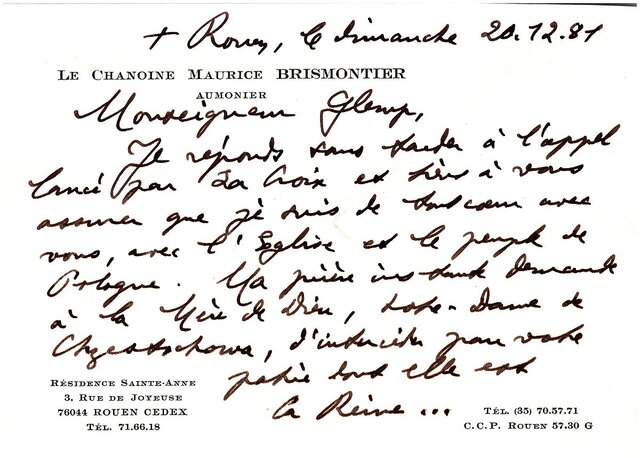 + Rouen, le dimanche 20.12.81
LE CHANOINE MAURICE BRISMONTIER
AUMONIER
Monseigneur Glemp,
Je réponds sans tarder à l'appel
lancé par La Croix et tiens à vous
assurer que je suis de tout cœur avec
vous, avec l'Eglise et le peuple de
Pologne. Ma prière instante demande
à la Mère de Dieu, Notre-Dame de
Częstochowa, d'intercéder pour votre
patrie dont elle est
la Reine...
RÉSIDENCE SAINTE-ANNE
3, RUE DE JOYEUSE
76044 ROUEN CEDEX
TÉL. 71.66.18
TÉL. (35) 70.57.71
C.C.P. ROUEN 57.30 G